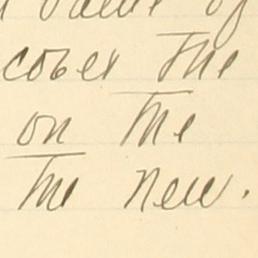 value of
cover The
on The
The new.